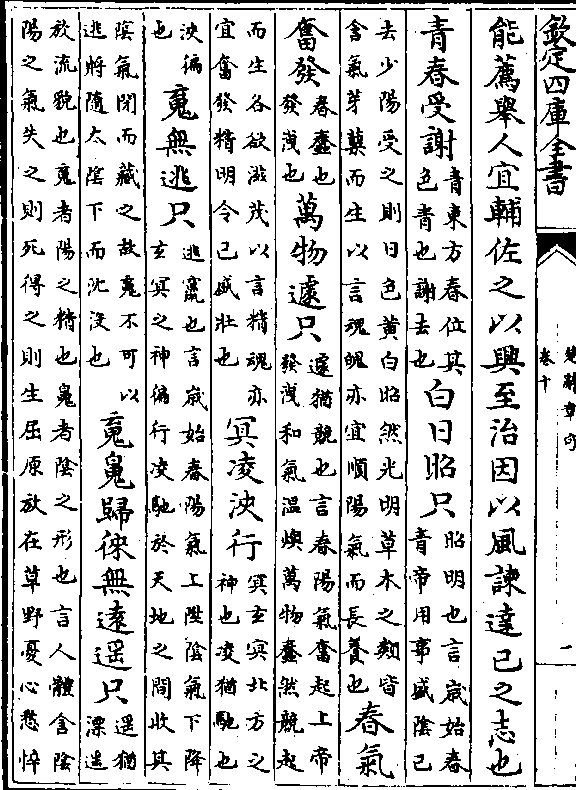 欽定四庫全書
楚辭章句
卷十
一
能薦舉人宜輔佐之以興至治因以風諫達己之志也
青春受謝
青東方春位其
色青也謝去也
白日昭只
昭明也言歲始春
青帝用事盛陰已
去少陽受之則日色黄白昭然光明草木之類皆
含氣芽蘖而生以言魂魄亦宜順陽氣而長養也
春氣
奮發
春蠢也
發洩也
萬物遽只
遽猶競也言春陽氣奮起上帝
發洩和氣温燠萬物蠢然競起
而生各欲滋茂以言精魂亦
宜奮發精明令己盛壯也
冥凌浹行
冥玄冥北方之
神也凌猶馳也
浹徧
也
䰟無逃只
逃竄也言歲始春陽氣上陞陰氣下降
玄冥之神徧行凌馳於天地之間收其
陰氣閉而藏之故䰟不可以
逃將隨太陰下而沈没也
䰟魄歸徠無遠遥只
遥猶
漂遥
放流貌也䰟者陽之精也魄者陰之形也言人體含陰
陽之氣失之則死得之則生屈原放在草野憂心愁悴